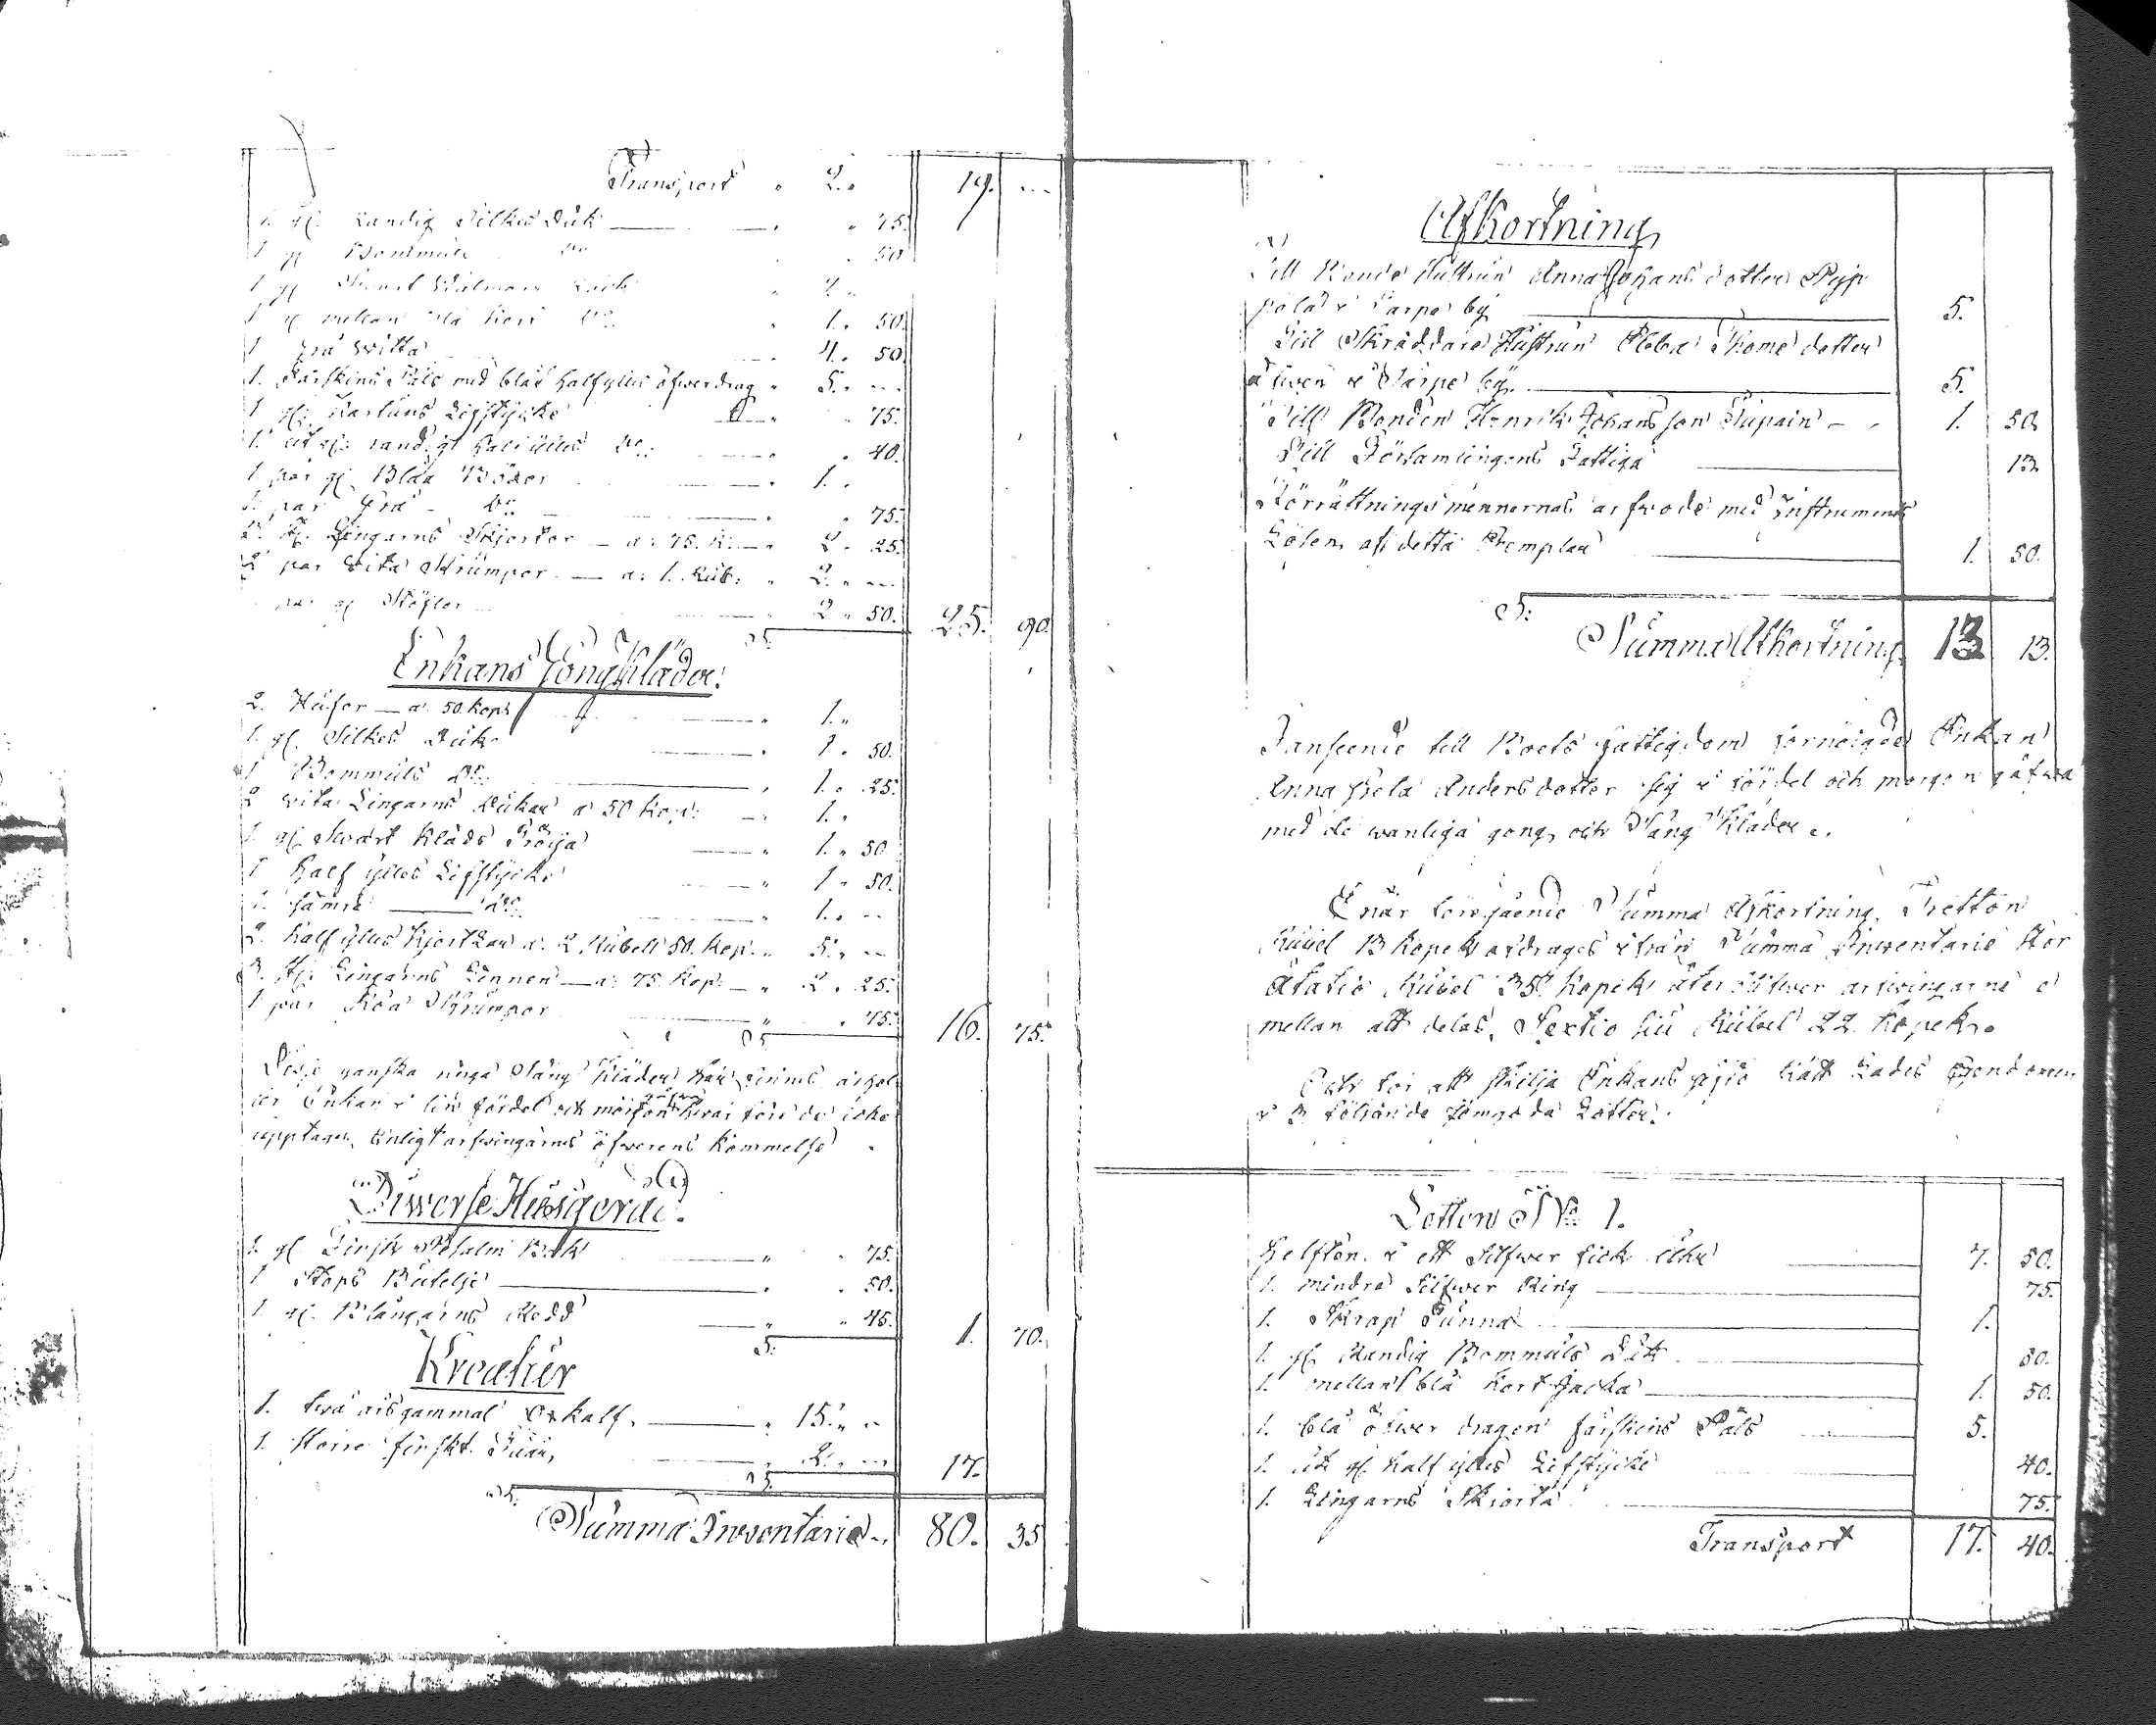 Transport " 2. " 19. ...
1. gl. Randig Silkes Duk " " 75.
1 gl Bommuls Do " 50
1 gl Svart Walmars " 2 "
1 gl mellan blå Kort Do " 1. 50.
1 grå witta " 4. 50
1. Fårskins Päls med blåt halfylles öfwerdrag " 5. " ...
1 gl. Kartuns Lifstycke " " 75.
1. ut gl. randigt halfylles Do " 40.
1 par gl. Blåa Böxor " 1. "
1. par Grå Do " " 75.
3. st. Lingarns Skjortor — a: 75. k. — " 2 . 25.
2 par Wita Strumpor — a: 1. Rub: " 2. " ...
1 par gl Stöflor 2 " 50. 25. 90.
S:
Enkans Gångkläder.
2. Hufor — a. 50. Kop: 1. "
1. gl. Silkes Duk 1 . 50.
1 Bommuls Do 1. " 25.
2 wita Lingarns Dukar a 50 Kop: — 1. "
1. gl. Swart Kläds Tröija " 1. " 50
1 half ylles Lifstycke " 1 " 50.
1. sämre Do " 1. " ..
2. half ylles Kjortlar a: 2 Rubell 50. Kop. " 5. " ...
3. st. Lingarns Linnen — a: 75. Kop: — " 2 . 25.
1 par Röa Strumpor " " 75. 16. 75.
S:
Desse ganska ringa Sång Kläder här finns ärhol
ler Enkan i sin fördel och morgon gåfwa hwarföre de icke
upptagen, Enligt arfwingarnes öfwerens kommelse.
Diwerse Husgeråd.
1. gl. Finsk Psalm Bok " " 75.
1 Stops Butelje " . 50.
1. gl. Blångarns Redd " " 45. 1. 70.
S:
Kreatur
1. två års gammal Oxkalf, " 15. " ..
1. Större finskt Får, " 2. " ... 17.
S:
S:
Summa Inventarie.. 80. 35
Afkortning
Till Bonde Hustrun Anna Johans dotter Pyp
pola i Sarpe by 5.
Till Skräddare Hustrun Ebba Thome dotter
äfwen i Sarpe by. 5.
Till Bonden Henrik Johansson Tupain — " 1. 50.
Till Församlingens Fattiga 13.
Förrättnings männernas arfwode med Instruments
Lösen af detta Exemplar 1. 50.
S:
Summa Afkortning. 13 13.
I anseende till Boets fattigdom förnöigde Enkan
Anna Hela Andersdotter sig i fördel och morgon gåfwa
med de wanliga gong, och Sång Kläder.
Enär föregående Summa Afkortning. Tretton
Rubel 13 kopek afdrages ifrån Summa Inwentarie Stor
åtatio Rubel 35 kopek återstå öfwer arfwingarne e
mellan att delas. Sextio siu Rubel 22. kopek.
Och för att skilja Enkans gifto Rätt Lades Egendomen
i 3 följande jämgoda Lotter.
Lotten No 1.
Helften. i ett Silfwer fick uhr 7. 50.
1. mindre Silfwer Ring 75.
1. Skrap Tunna 1.
1. gl. Randig Bommuls Duk 50.
1. mellan blå Kort Jacka 1. 50.
1. blå öfwer dragen fårskins Päls 5.
1. ut gl half ylles Lifstycke 40.
1. Lingarns Skiorta 75.
Transport 17. 40.